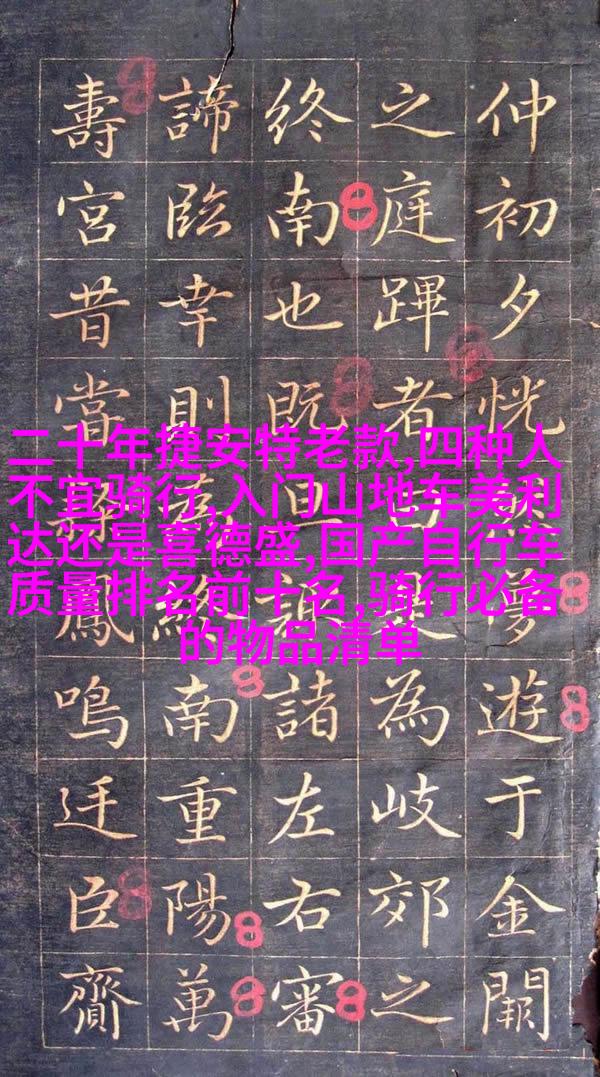 仲初夕恍夢遊于金闕
之庭蹕者為岐郊之
終南也既旦諸左右審
諦臨幸則終南重陽萬
壽宮昔當鳳鳴迂臣齎
二十年捷安特老款,四种人
不宜骑行,入门山地车美利
达还是喜德盛,国产自行车
质量排名前十名,骑行必备
的物品清单